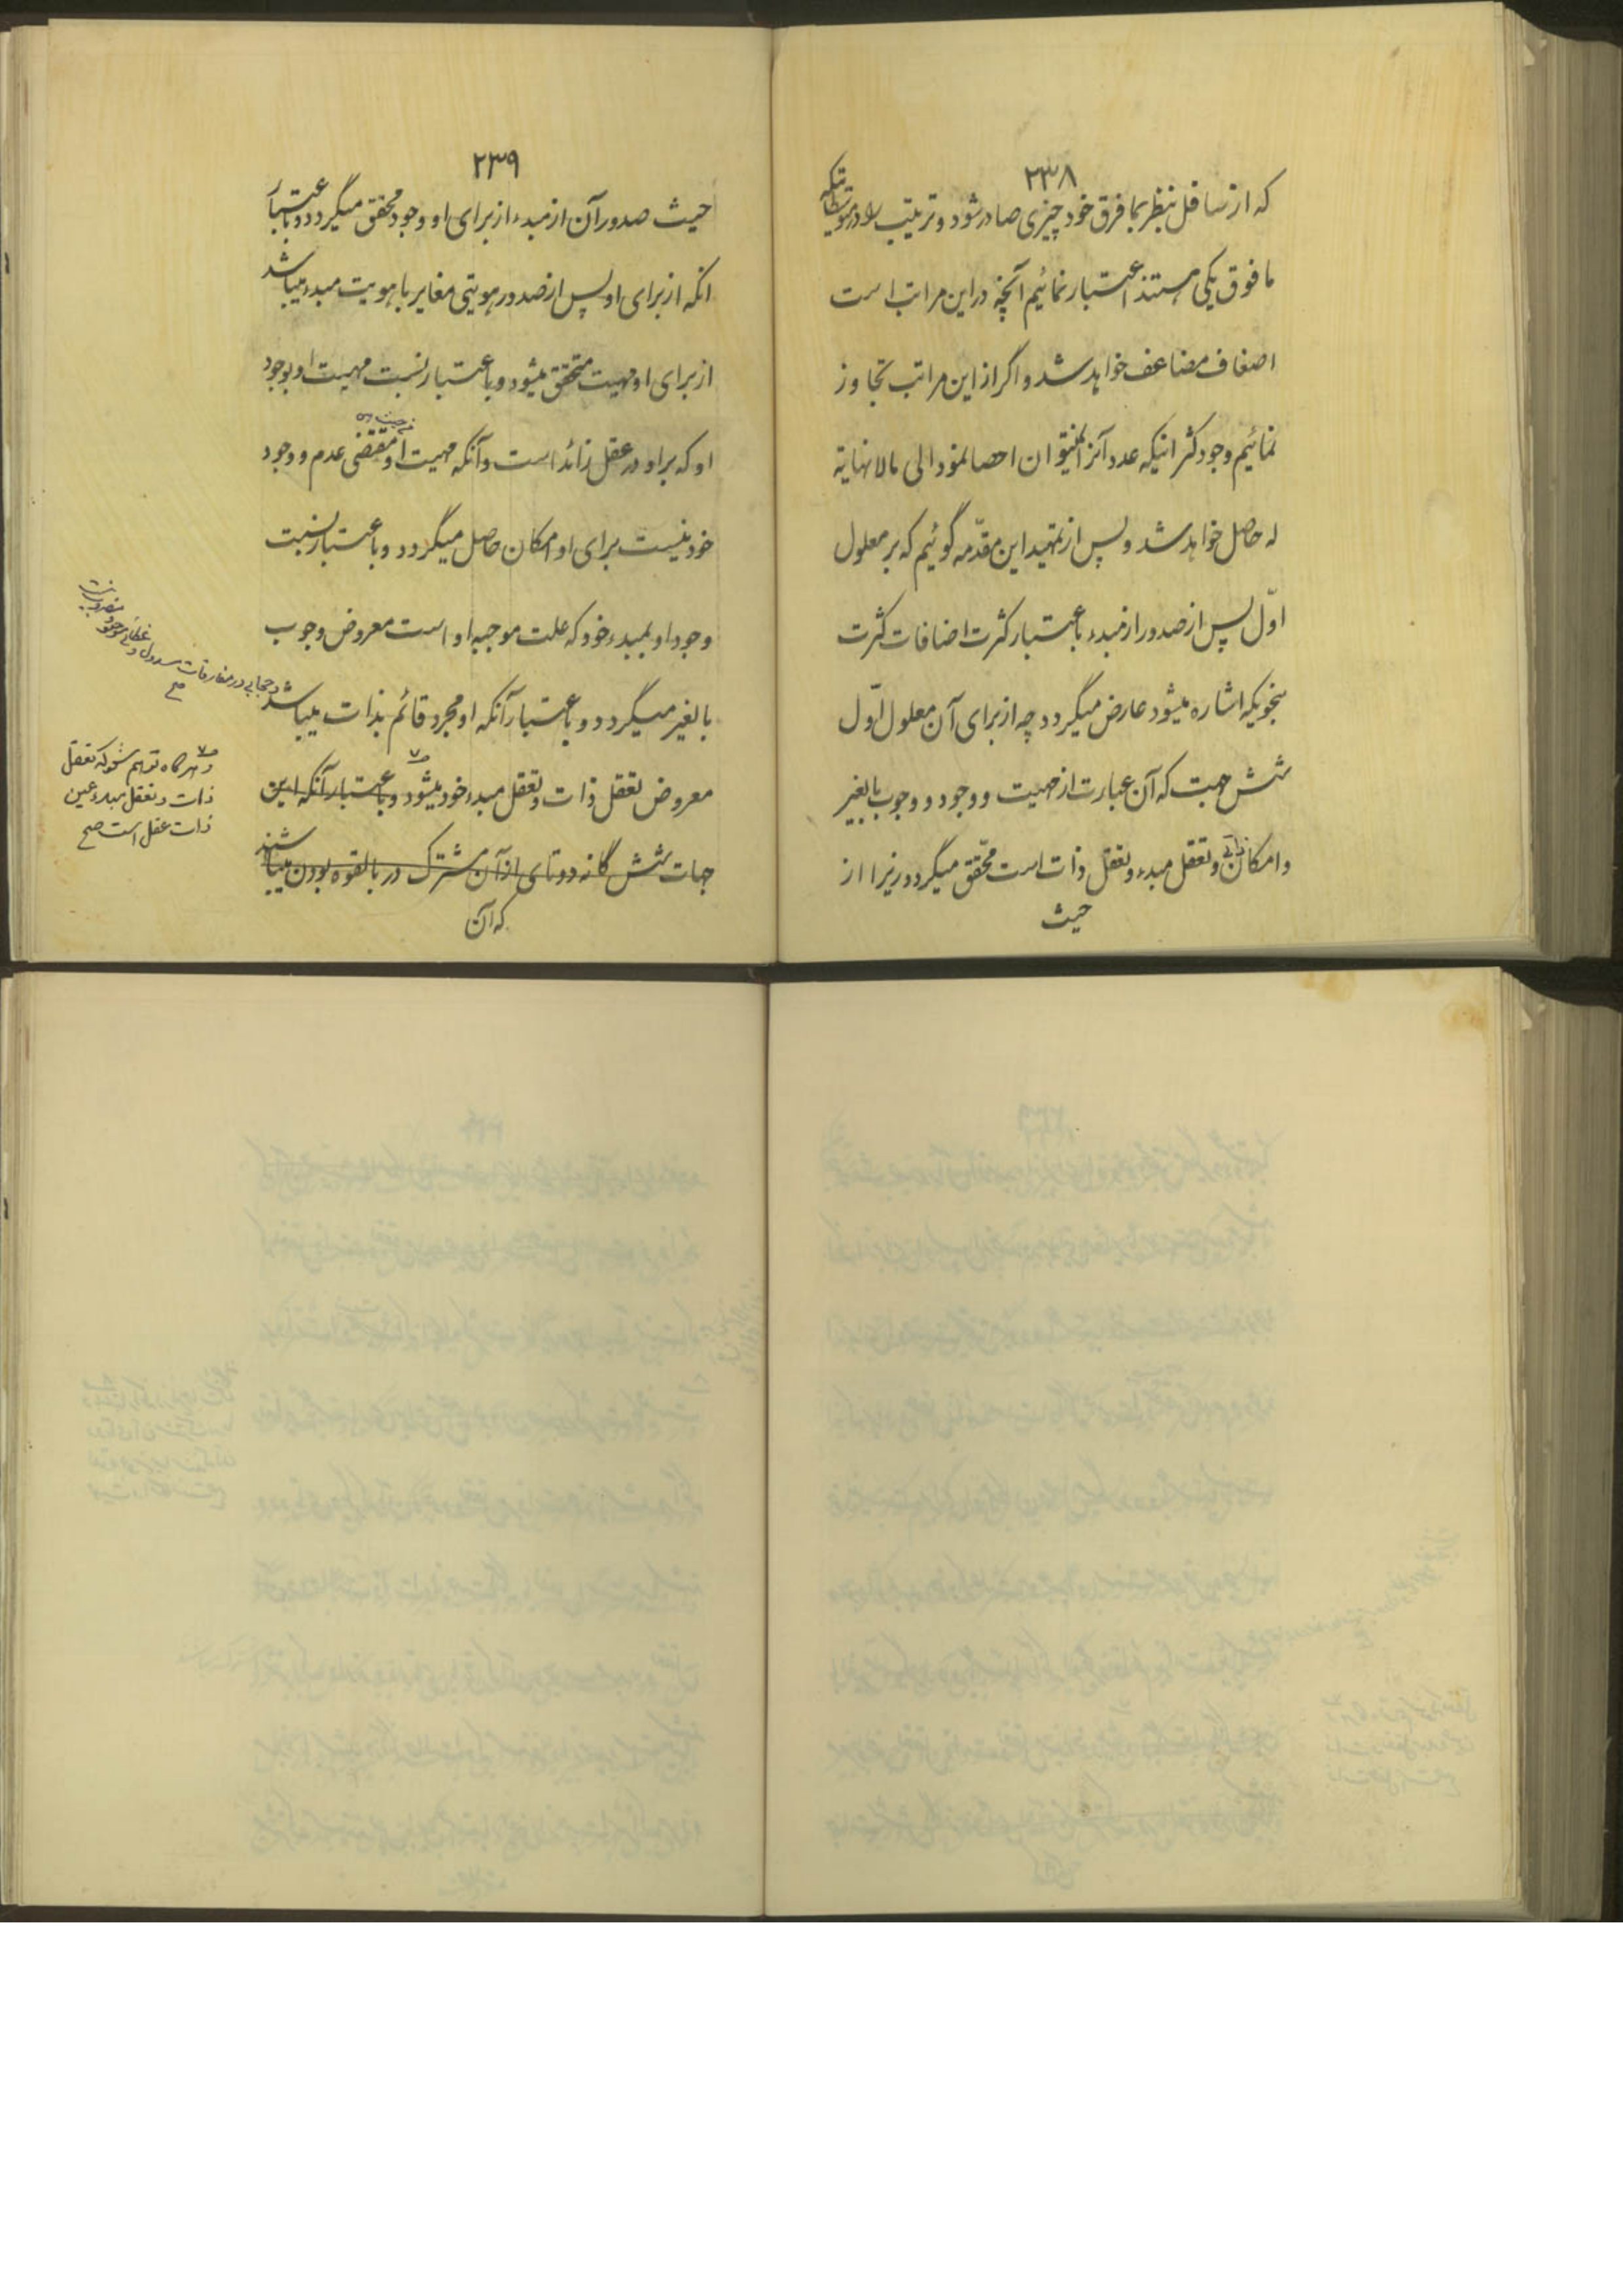 ۲۳۸
که از سافل بنظر بما فرق خود چیزی صادر شود و ترتیب را در متوسطاتیکه
ما فوق یکی هستند اعتبار نمائیم آنچه در این مراتب است
اضعاف مضاعف خواهد شد و اگر از این مراتب تجاوز
نمائیم وجود کثراتیکه عدد آنرا نمیتوان احصا نمود الی ما لا نهایة
له حاصل خواهد شد و پس از تمهید این مقدّمه گوئیم که بر معلول
اوّل پس از صدور از مبدء باعتبار کثرت اضافات کثرت
بنحویکه اشاره میشود عارض میگردد چه از برای آن معلول اوّل
شش جهت که آن عبارت از مهیت و وجود و وجوب بالغیر
و امکان ذاتی و تعقل مبدء و تعقل ذات است محّقق میگردد زیرا از
حیث
۲۳۹
حیث صدور آن از مبدء از برای او وجود محقق میگردد و باعتبار
انکه از برای او پس از صدور هویتی مغایر با هویت مبدء میباشد
از برای او مهیت متحقق میشود و باعتبار نسبت مهیت او بوجود
او که بر او در عقل زائد است و آنکه مهیت او من حیث هی مقتضی عدم و وجود
خود نیست برای او امکان حاصل میگردد و باعتبار نسبت
وجود او بمبدء خود که علت موجبه او است معروض وجوب
بالغیر میگردد و باعتبار آنکه او مجرد قائم بذات میباشد
معروض تعقل ذات و تعقل مبدء خود میشود و باعتبار آنکه این
جهات شش گانه دوتای از آن مشترک در بالقوه بودن میباشند
که آن
و حجابی در مفارقات
صح
و هرگاه توهم شود که تعقل
ذات و تعقل مبدء عین
ذات عقل است صح